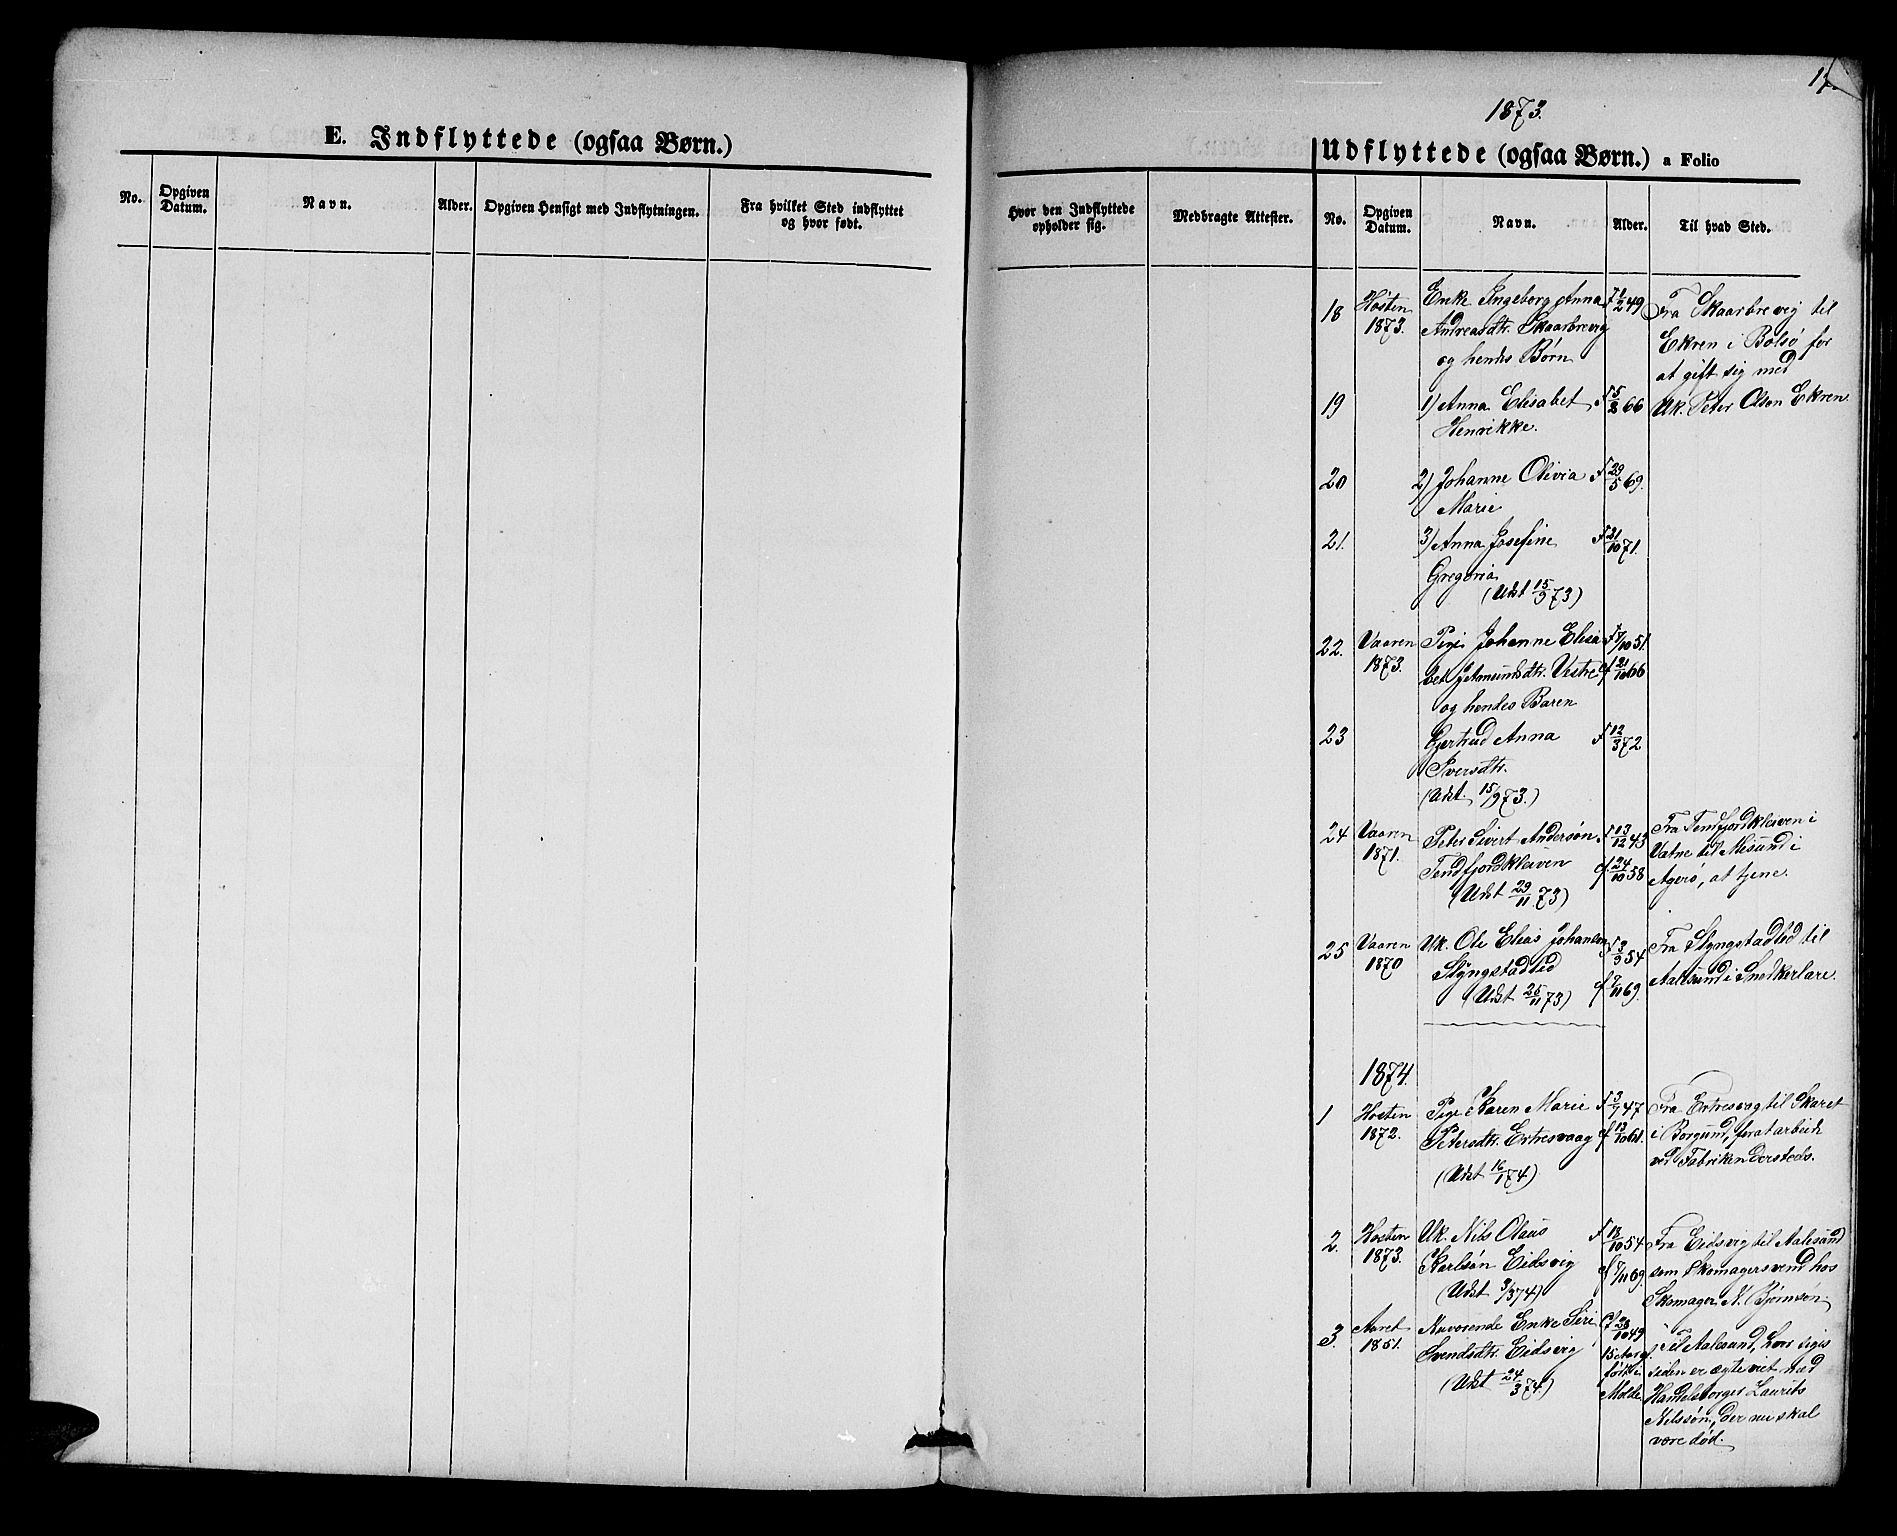 E. Indflyttede (ogsaa Børn.)
No.
Opgiven
Datum.
Navn.
Alder.
Opgiven Hensigt med Indflytningen.
Fra hvilket Sted indflyttet
og hvor født.
Hvor den Indflyttede
opholder sig.
Medbragte Attester.
1873.
Udflyttede (ogsaa Børn.) a Folio
No.
Opgiven
Datum.
Navn.
Alder.
Til hvad Sted.
18
Hösten
1873.
Enke Ingeborg Anna
Andreasdtr. Skaarbrevig
og hendes Børn
49
Fra Skaarbrevig til
Ekren i Bolsø for
at gift sig med
Uk. Peter Olsen Ekren.
19
1) Anna Elisabet
Henrikke.
F 5/2 66
20
2) Johanne Olivia
Marie
F 29/5 69.
21.
3) Anna Josefine
Gregoria
(Udst 15/9 73)
F 21/10 71.
22.
Vaaren
1873.
Pige Johanne Elisa
bet Vestre
og hendes Baren
F 7/10 51.
cf 21/10 66
23
Gjertrud Anna
Iversdtr.
(Udst. 15/9 73.)
F 12/3 72
24
Vaaren
1871.
Peter Sivert Andersøn
Tendfjordkleiven
(Udst 29/11 73)
F 13/12 43
cf 24/10 58
Fra Tendfjordkleiven i
Vatne til Misund i
Agerø, at tjene.
25
Vaaren
1870
Uk. Ole Elias Johansen
Slyngstadlid
(Udst 25/11 73)
F 3/9 54
cf 7/11 69.
Fra Slyngstadlid til
Aalesund i Snedkerlære.
1874.
1
Hosten
1872.
Pige Karen Marie
Petersdtr. Ertresvaag
(Udst 16/1 74)
F 3/7 47
cf 13/10 61.
Fra Ertresvag til Skaret
i Borgund, for at arbeide
ved Fabriken dersteds.
2.
Hosten
1873.
Uk. Nils Olaus
Karlsön Eidsvig
(Udst 3/3 74)
F 12/10 54
cf 7/11 69.
Fra Eidsvig til Aalesund
som Skomagersvend hos
Skomager N. Bjørnson.
3.
Aaret
1851.
Nuværende Enke Siri
Svendsdtr. Eidsvig
(Udst 24/3 74)
cf 28/10 49
15 Aar gl
født i
Molde
Til Aalesund, hvor
siden er ægteviet med
Handelsborger Laurits
Nilssøn, der nu skal
være død.